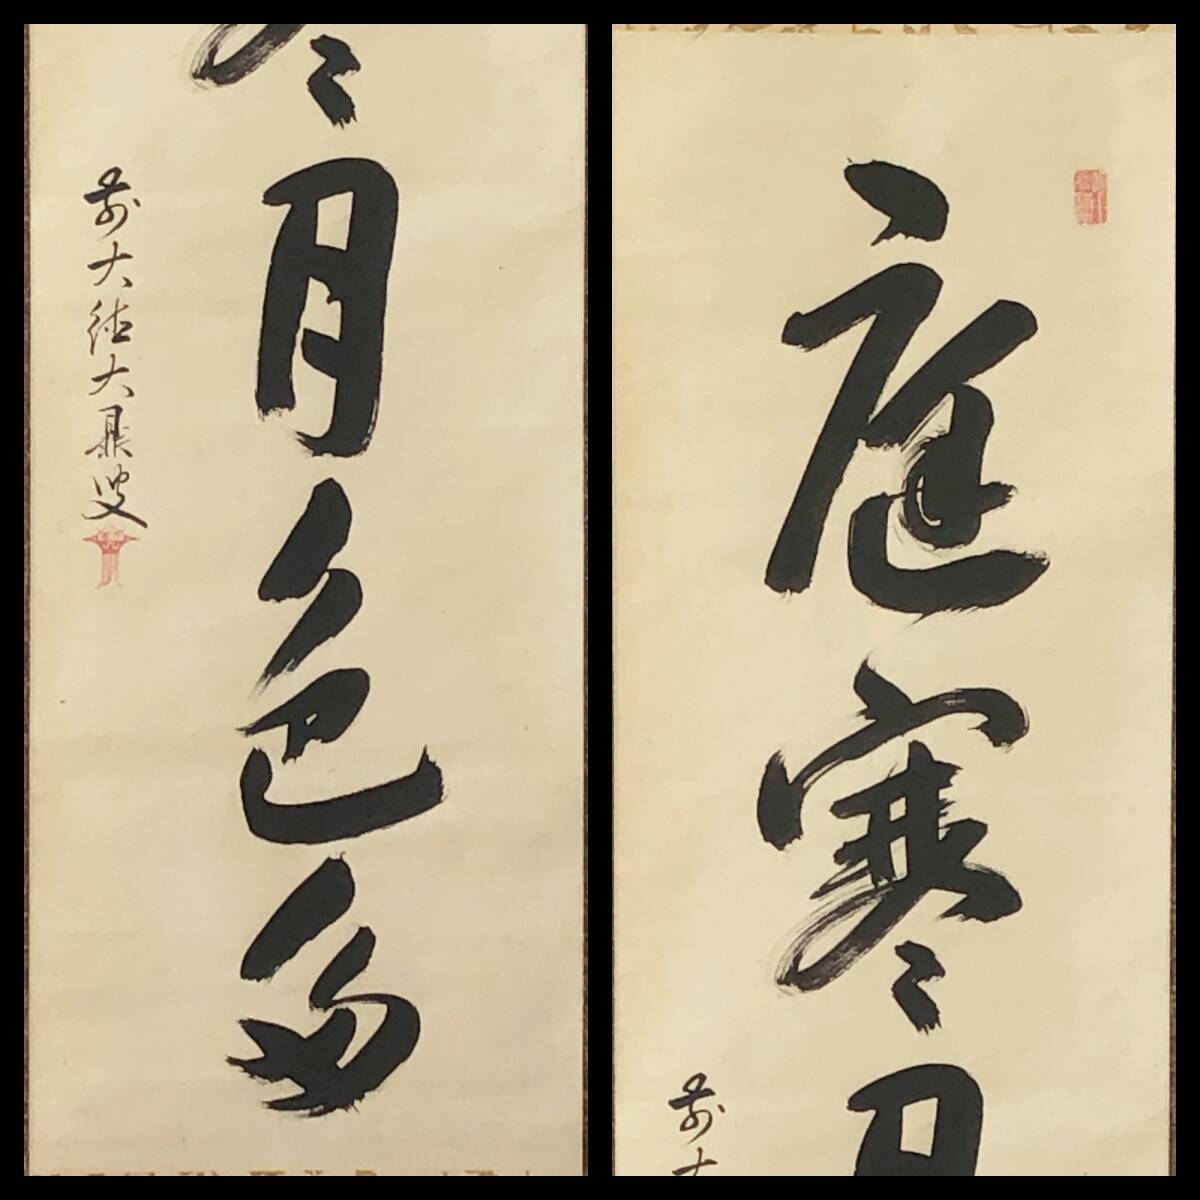 月色多
前大徳大鼎叟
庭寒月
前大